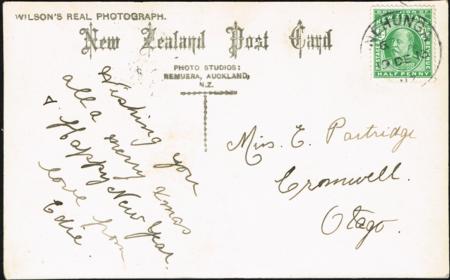 WILSON'S REAL PHOTOGRAPH.
New Zealand Post Card
PHOTO STUDIOS:
REMUERA, AUCKLAND,
N.Z.
HALF PENNY
Wishing you
all a merry Xmas
& Happy New Year.
love from
Edie.
Miss. E. Partridge
Cromwell.
Otago.